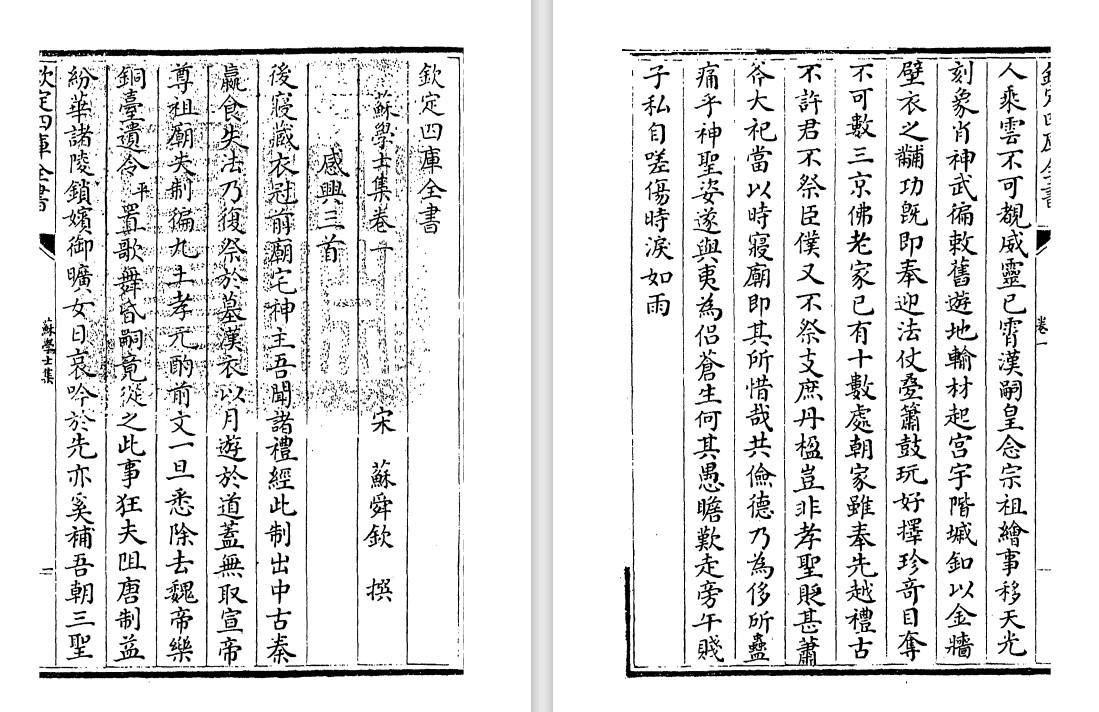 欽定四庫全書
蘇學士集卷一
宋 蘇舜欽 撰
感興三首
後寢藏衣冠前廟宅神主吾聞諸禮經此制出中古秦
嬴食失法乃復祭於墓漢衣以月遊於道蓋無取宣帝
尊祖廟失制徧九土孝元酌前文一旦悉除去魏帝樂
銅臺遺令平置歌舞昏嗣竟從之此事狂夫阻唐制益
紛華諸陵鎖嬪御曠女日哀吟於先亦奚補吾朝三聖
欽定四庫全書 蘇學士集
欽定四庫全書 卷一
人乘雲不可覩威靈已霄漢嗣皇念宗祖繪事移天光
刻象肖神武徧敕舊遊地輸材起宫宇階墄釦以金牆
壁衣之黼功旣即奉迎法仗疊簫鼓玩好擇珍奇目奪
不可數三京佛老家已有十數處朝家雖奉先越禮古
不許君不祭臣僕又不祭支庶丹楹豈非孝聖貶甚蕭
斧大祀當以時寢廟即其所惜哉共儉德乃為侈所蠱
痛乎神聖姿遂與夷為侶蒼生何其愚瞻歎走旁午賤
子私自嗟傷時淚如雨